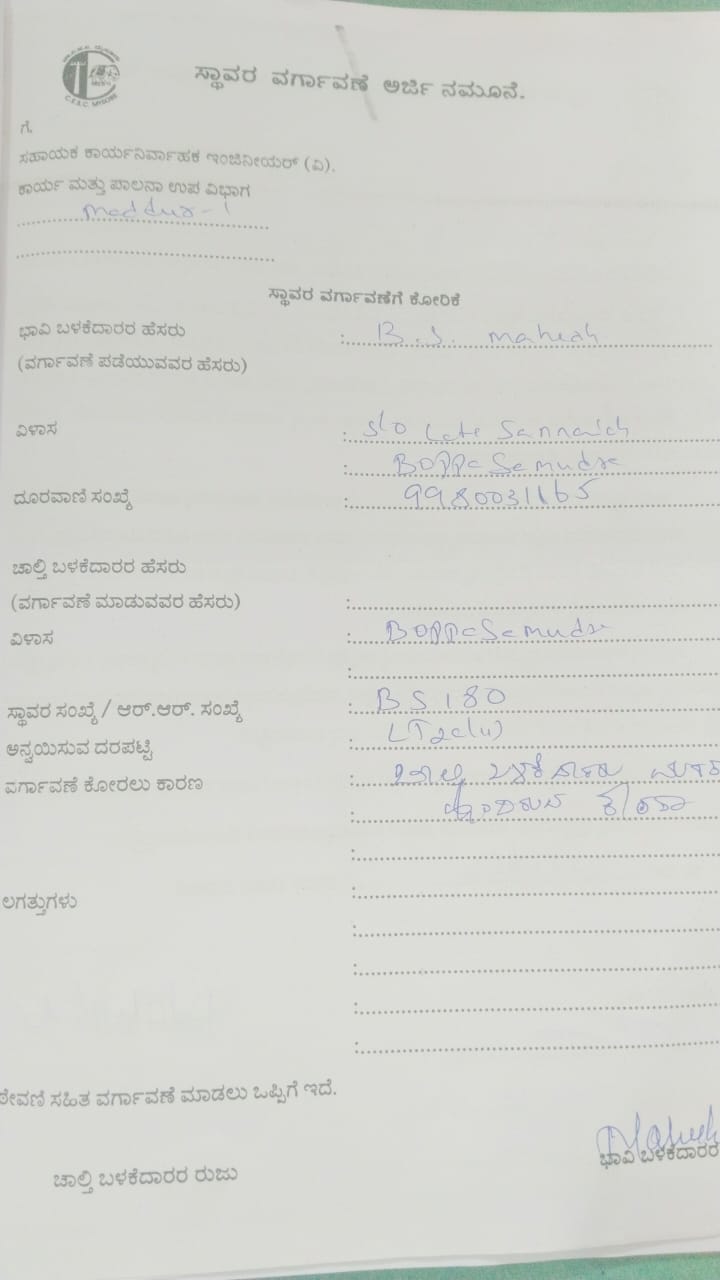 C.E.S.C MYSORE
ಸ್ಥಾವರ ವರ್ಗಾವಣೆ ಅರ್ಜಿ ನಮೂನೆ.
ಗೆ,
ಸಹಾಯಕ ಕಾರ್ಯನಿರ್ವಾಹಕ ಇಂಜಿನೀಯರ್ (ವಿ).
ಕಾರ್ಯ ಮತ್ತು ಪಾಲನಾ ಉಪ ವಿಭಾಗ
Maddur-1
ಸ್ಥಾವರ ವರ್ಗಾವಣೆಗೆ ಕೋರಿಕೆ
ಭಾವಿ ಬಳಕೆದಾರರ ಹೆಸರು : B.S. Mahesh
(ವರ್ಗಾವಣೆ ಪಡೆಯುವವರ ಹೆಸರು)
ವಿಳಾಸ : S/o Late Sannaiah
: BOPPaSamudra
ದೂರವಾಣಿ ಸಂಖ್ಯೆ : 9980031165
ಚಾಲ್ತಿ ಬಳಕೆದಾರರ ಹೆಸರು
(ವರ್ಗಾವಣೆ ಮಾಡುವವರ ಹೆಸರು) :
ವಿಳಾಸ : BOPPaSamudra
:
ಸ್ಥಾವರ ಸಂಖ್ಯೆ / ಆರ್.ಆರ್. ಸಂಖ್ಯೆ : BS180
ಅನ್ವಯಿಸುವ ದರಪಟ್ಟಿ :
ವರ್ಗಾವಣೆ ಕೋರಲು ಕಾರಣ : ಬಳಕೆದಾರರು ಮರಣ
: ಹೊಂದಿರುವ
:
ಲಗತ್ತುಗಳು :
:
:
:
:
ಠೇವಣಿ ಸಹಿತ ವರ್ಗಾವಣೆ ಮಾಡಲು ಒಪ್ಪಿಗೆ ಇದೆ.
Mahesh
ಚಾಲ್ತಿ ಬಳಕೆದಾರರ ರುಜು ಭಾವಿ ಬಳಕೆದಾರರ